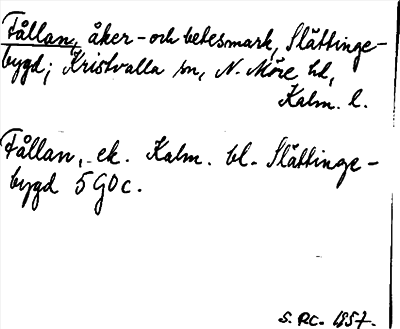 Fållan, åker- och betesmark, Slättinge-
bygd; Kristvalla sn, N. Möre hd,
Kalm. l.
Fållan, ek. Kalm. bl. Slättinge-
bygd 5G0c.
S. RC. 1957.